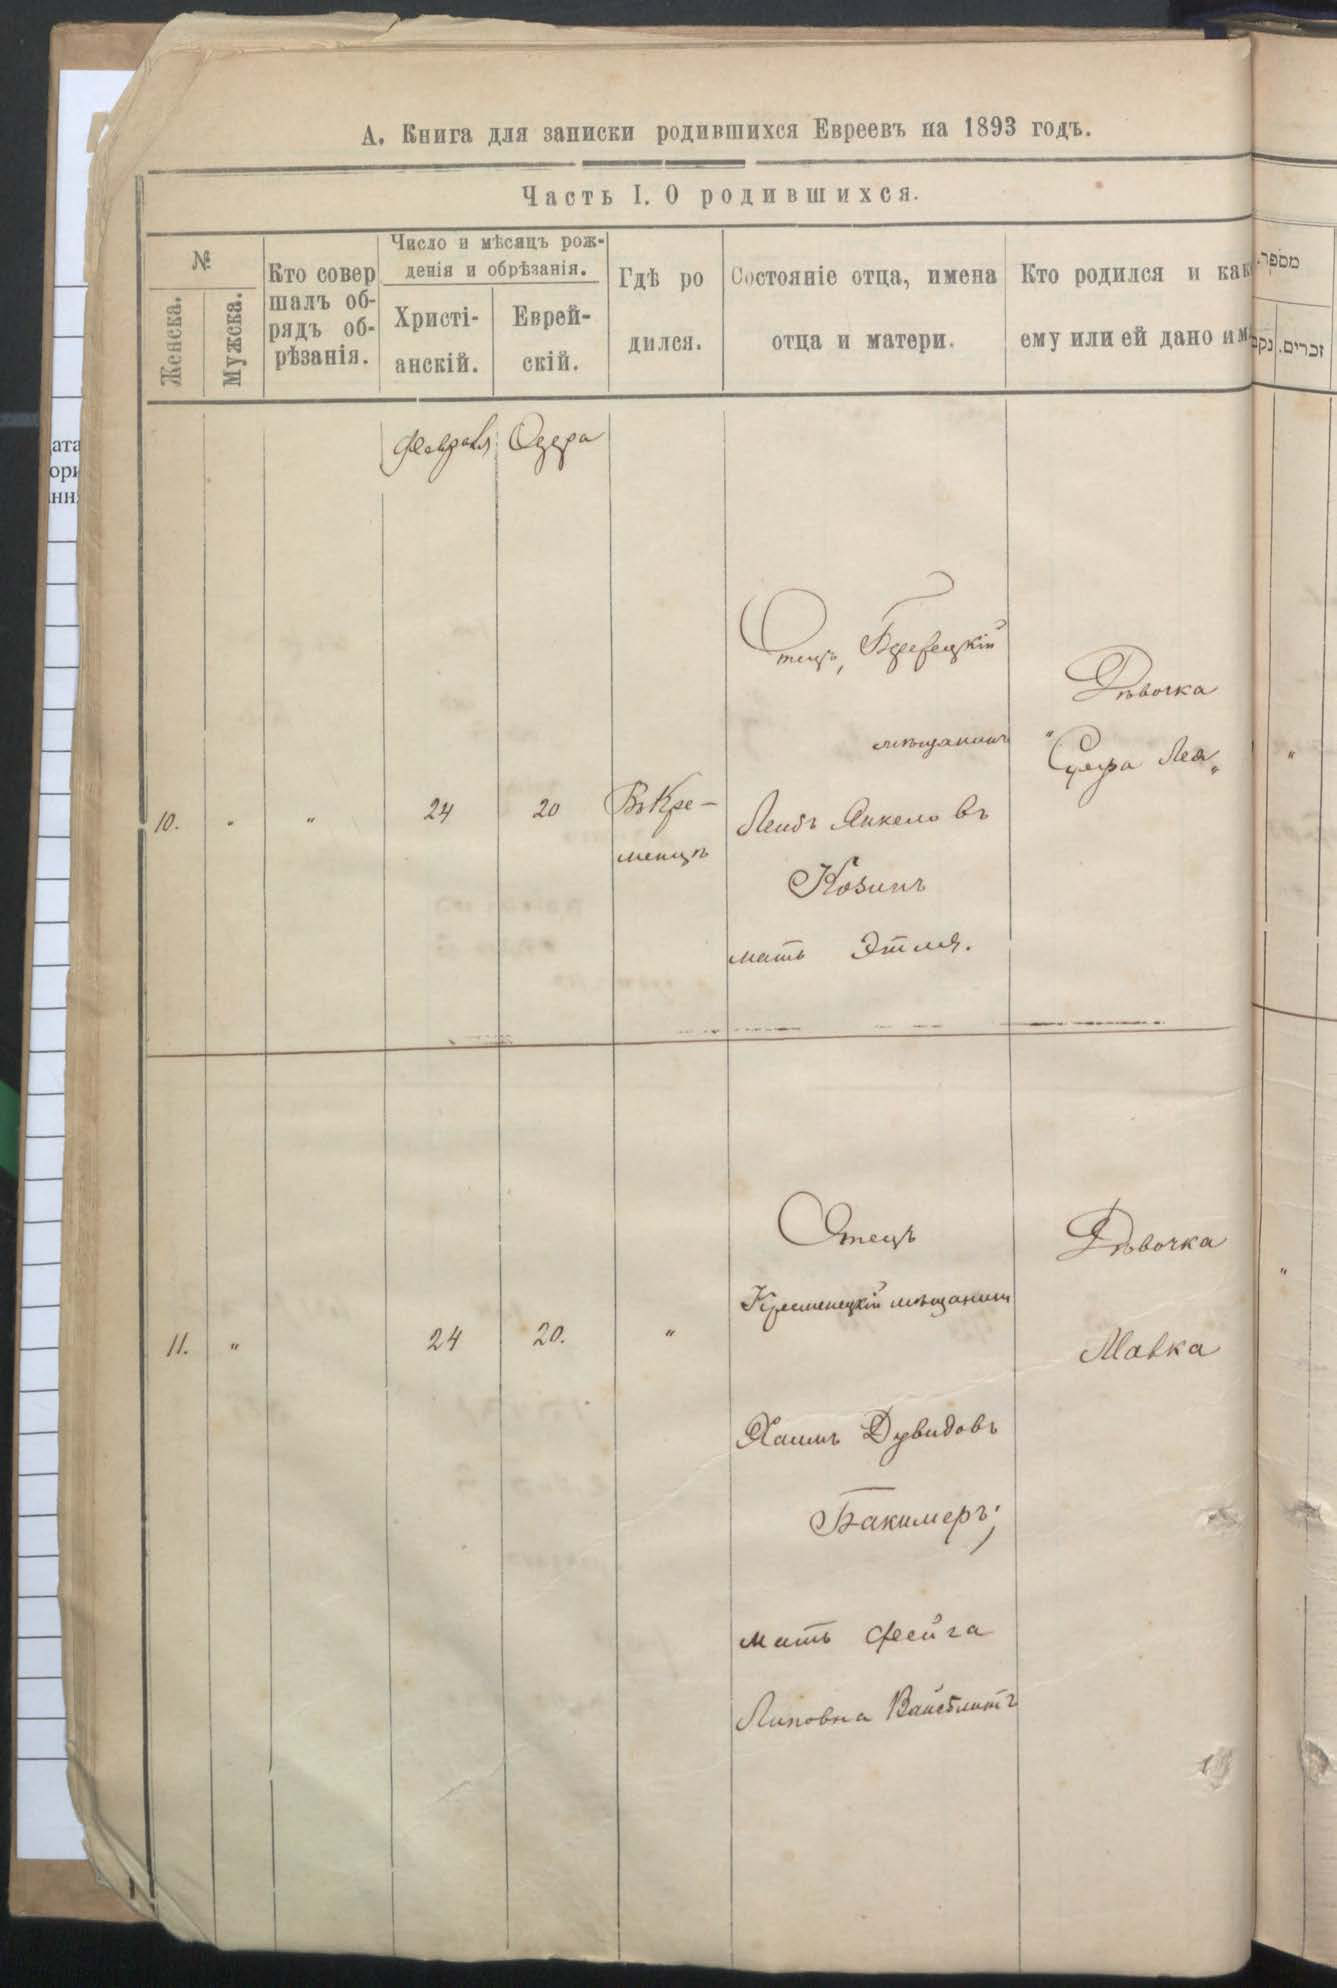 А. Книга для записки родившихся Евреевъ на 1893 годъ.
Часть I. О родившихся.
№
Женска.
Мужска.
Кто совер
шалъ об-
рядъ об-
рѣзанія.
Число и мѣсяцъ рож-
денія и обрѣзанія.
Христі-
анскій.
Еврей-
скій.
Гдѣ ро
дился.
Состояніе отца, имена
отца и матери.
Кто родился и как
ему или ей дано им
מספר.
זכרים.
נקב
ата
ори
нн
Февраля
Одера
10.
"
"
24
20
Въ Кре-
менцѣ
Отецъ,
мѣщанинъ
Лейбъ Янкелевъ
Козинъ
мать Этля.
Дѣвочка
"Сура Лея"
"
11.
"
24
20.
"
Отецъ
Кременецкій мѣщанинъ
Хаимъ Дувидовъ
Бакимеръ;
мать Фейга
Липовна Вайсблитъ
Дѣвочка
Малка
"